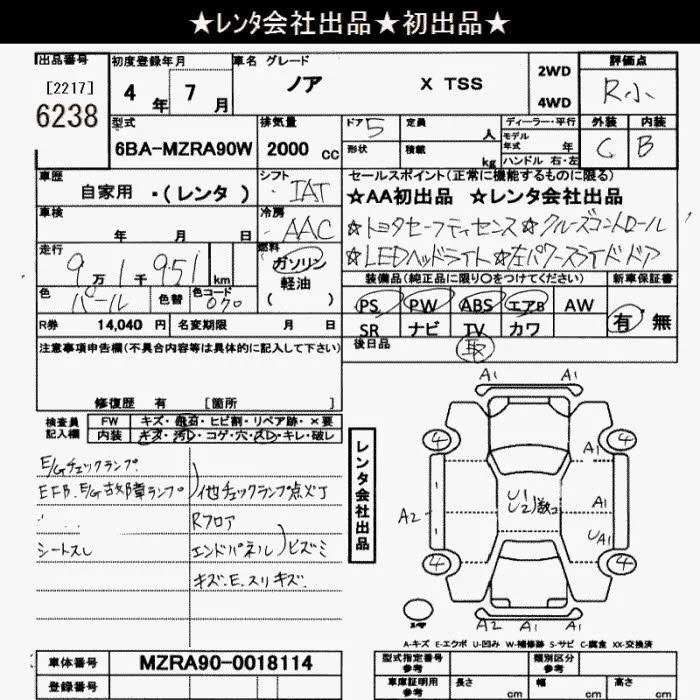 ★レンタ会社出品★初出品★
出品番号 初度登録年月 車名 グレード 評価点
[2217]
6238
4年 7月
ノア X TSS
2WD
4WD
R小
型式 排気量 ドア 定員 ディーラー・平行 外装 内装
6BA-MZRA90W 2000 cc
5 人
モデル年式 年
C B
形状 積載 kg ハンドル 右・左
車歴 シフト セールスポイント(正常に機能するものに限る)
自家用 ・(レンタ)
IAT
★AA初出品 ★レンタ会社出品
車検 年 月 日 冷房 AAC
☆トヨタセーフティセンス☆クルーズコントロール
走行 9万1千951 km
燃料 ガソリン 軽油 ( )
☆LEDヘッドライト☆左パワースライドドア
色 パール 色替 色コード 070
装備品(純正品に限り○をつけてください) 新車保証書
PS PW ABS エアB AW
有・無
SR ナビ TV カワ
R券 14,040 円 名変期限 月 日
後日品 取
注意事項申告欄(不具合内容等は具体的に記入して下さい)
修復歴 有 [箇所
検査員記入欄
FW キズ・飛石・ヒビ割・リペア跡・×要
内装 キズ・汚れ・コゲ・穴・スレ・キレ・破レ
E/Gチェックランプ
EFB.E/G故障ランプ)他チェックランプ点灯
Rフロア
シートスレ エンドパネル)ビズミ
キズ.E.スリキズ.
レンタ会社出品
A1 A1
4 4
A1
U1
U2)数コ
A2 A1
UA1
4 4
A2 A1 A1
A-キズ E-エクボ U-凹み W-補修跡 S-サビ C-腐食 XX-交換済
車体番号 MZRA90-0018114
型式指定番号 参考 類別区分 参考
登録番号
車庫証明用 参考 長さ cm 幅 cm 高さ cm